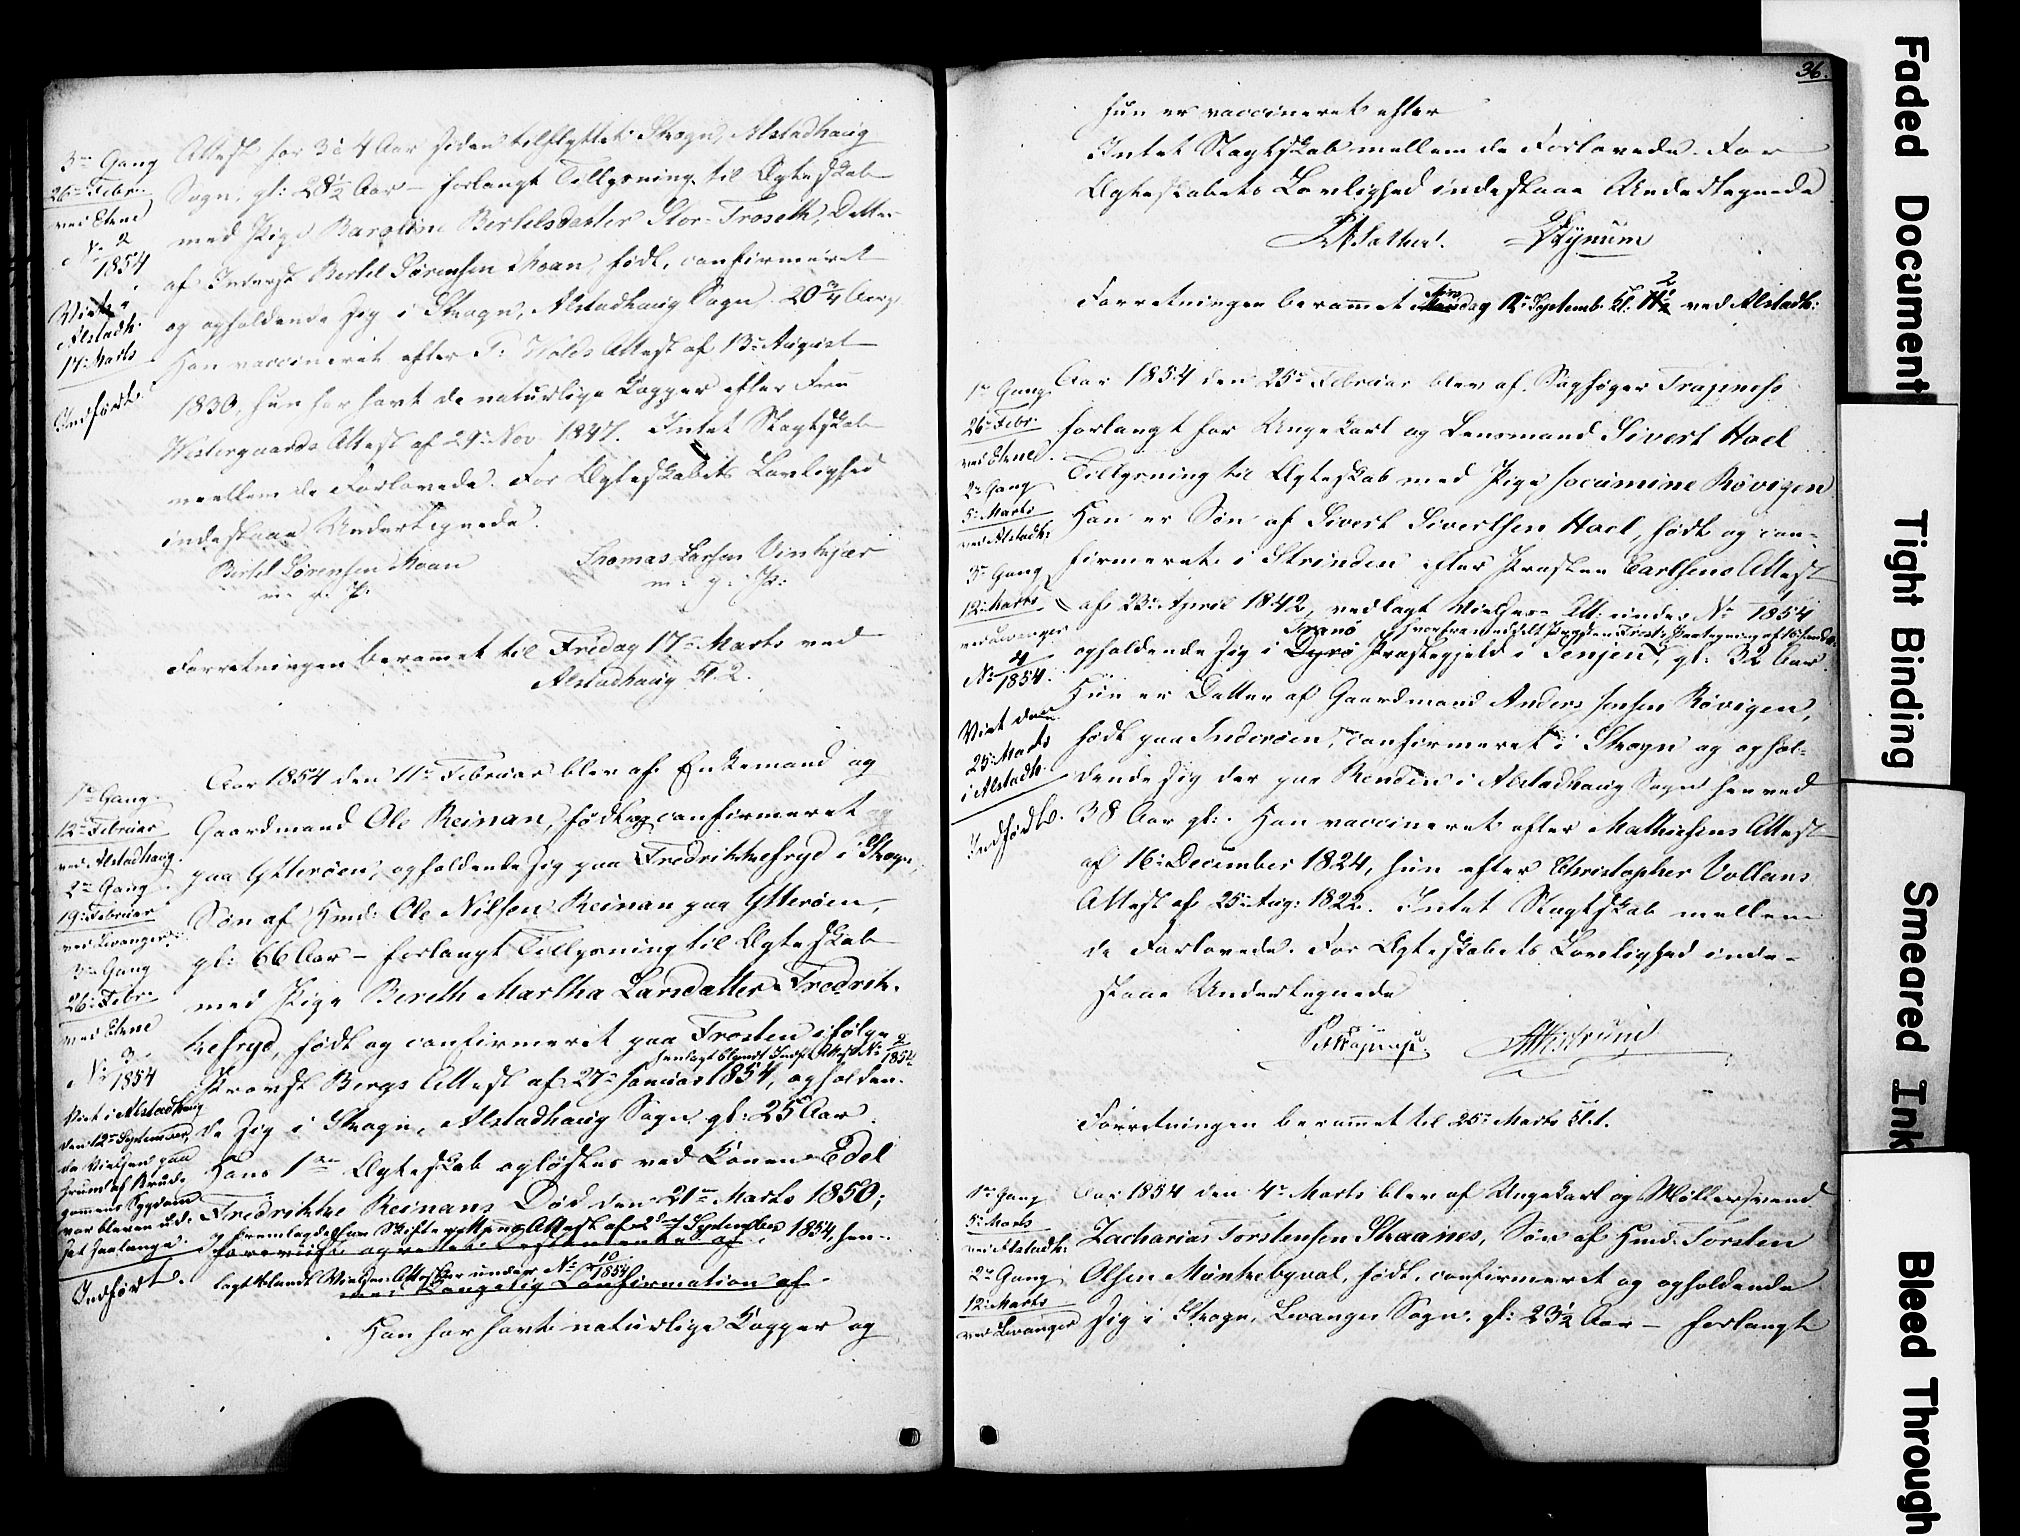 3die Gang
26de Febr:
ved Ekne
No 2
1854
Viet i
Alstadh:
17: Marts
Indført.
Attest for 3 à 4 Aar siden tilflyttet Skogn, Alstadhaug
Sogn, gl: 28½ Aar – forlangt Tillysning til Ægteskab
med Pige Baroline Bertelsdatter Stor-Troseth, Datter
af Inderst Bertel Sørensen Moan, født, confirmeret
og opholdende sig i Skogn, Alstadhaug Sogn 20¾ Aar gl.
Han vaccineret efter Attest af 13de August
1830, hun har havt de naturlige Kopper efter Fru
Westergaards Attest af 29de Nov: 1847. Intet Slagtskab
mellem de Forlovede. For Ægteskabets Lovlighed
indestaae Undertegnede.
Bertel Sørensen Moan Thomas Larsen Vinkjær
m. p. P. m. p. P.
Forretningen berammet til Fredag 17de Marts ved
Alstadhaug Kl. 2.
1ste Gang
12te Februar
ved Alstadhaug.
2den Gang
19: Februar
ved Levanger
3die Gang
26: Febr:
ved Ekne
No 3
1854
Viet i Alstadhaug
den 12te September,
da Vielsen paa
Grund af Brud-
gommens Sygdom
var bleven ud-
sat saalænge.
Indført.
Aar 1854 den 11te Februar blev af Enkemand og
Gaardmand Ole Reinan, født og confirmeret
paa Ytterøen, opholdende sig paa Fredrikkefryd i Skogn,
Søn af Hmd: Ole Nilsen Reinan paa Ytterøen,
gl: 66 Aar – forlangt Tillysning til Ægteskab
med Pige Bereth Martha Larsdatter Fredrik-
kefryd, født og confirmeret paa Frosten ifølge
henlagt blandt Indfl. Attest No 2 1854
Provst Bergs Attest af 27de Januar 1854, opholden-
de sig i Skogn, Alstadhaug Sogn gl: 25 Aar
Hans 1ste Ægteskab opløstes ved Konen Edel
Fredrikke Reinans Død den 21de Marts 1850;
og fremlagdes en Skifte Attest af 2den September 1854, hen-
lagt blandt Vielses Attester under No 10 1854
Kongelig Confirmation af
Han har havt naturlige Kopper og
36.
hun er vaccineret efter
Intet Slagtskab mellem de Forlovede. For
Ægteskabets Lovlighed indestaae Undertegnede
Forretningen berammet Tirsdag 12te Septemb. Kl: 2 ved Alstadh:
1ste Gang
26de Febr:
ved Ekne.
2den Gang
5te Marts
ved Alstadh:
3die Gang
12te Marts
ved Levanger
No 4
1854.
Viet den
25: Marts
i Alstadh:
Indført.
Aar 1854 den 25de Februar blev af Sagfører
forlangt for Ungekarl og Lensmand Sivert Hoel
Tillysning til Ægteskab med Pige Jocumine Røvigen
Han er Søn af Sivert Sivertsen Hoel, født og con-
firmeret i Strinden efter Præsten Carlsens Attest
af 23de April 1842, vedlagt Vielses Att. under No 1854
Tranø
opholdende sig i Dyrø Præstegjeld i Senjen, gl: 32 Aar
Hun er Datter af Gaardmand Anders Jensen Røvigen,
født paa Inderøen, confirmeret i Skogn og ophol-
dende sig der paa Renden i Alstadhaug Sogn henved
38 Aar gl:. Han vaccineret efter Mathiesens Attest
af 16: December 1824, hun efter Christopher Vollans
Attest af 25de Aug: 1822. Intet Slagtskab mellem
de Forlovede. For Ægteskabets Lovlighed inde-
staae Undertegnede
Forretningen berammet til 25de Marts Kl. 1.
1ste Gang
5te Marts
ved Alstadh:
2den Gang
12te Marts
ved Levanger
Aar 1854 den 4de Marts blev af Ungekarl og Møllersvend
Zacharias Torstensen Skaanes, Søn af Hmd: Torsten
Olsen Munkebyval, født, confirmeret og opholdende
sig i Skogn, Levanger Sogn, gl: 23½ Aar – forlangt
Faded Document
Tight Binding
Smeared Ink
Bleed Through